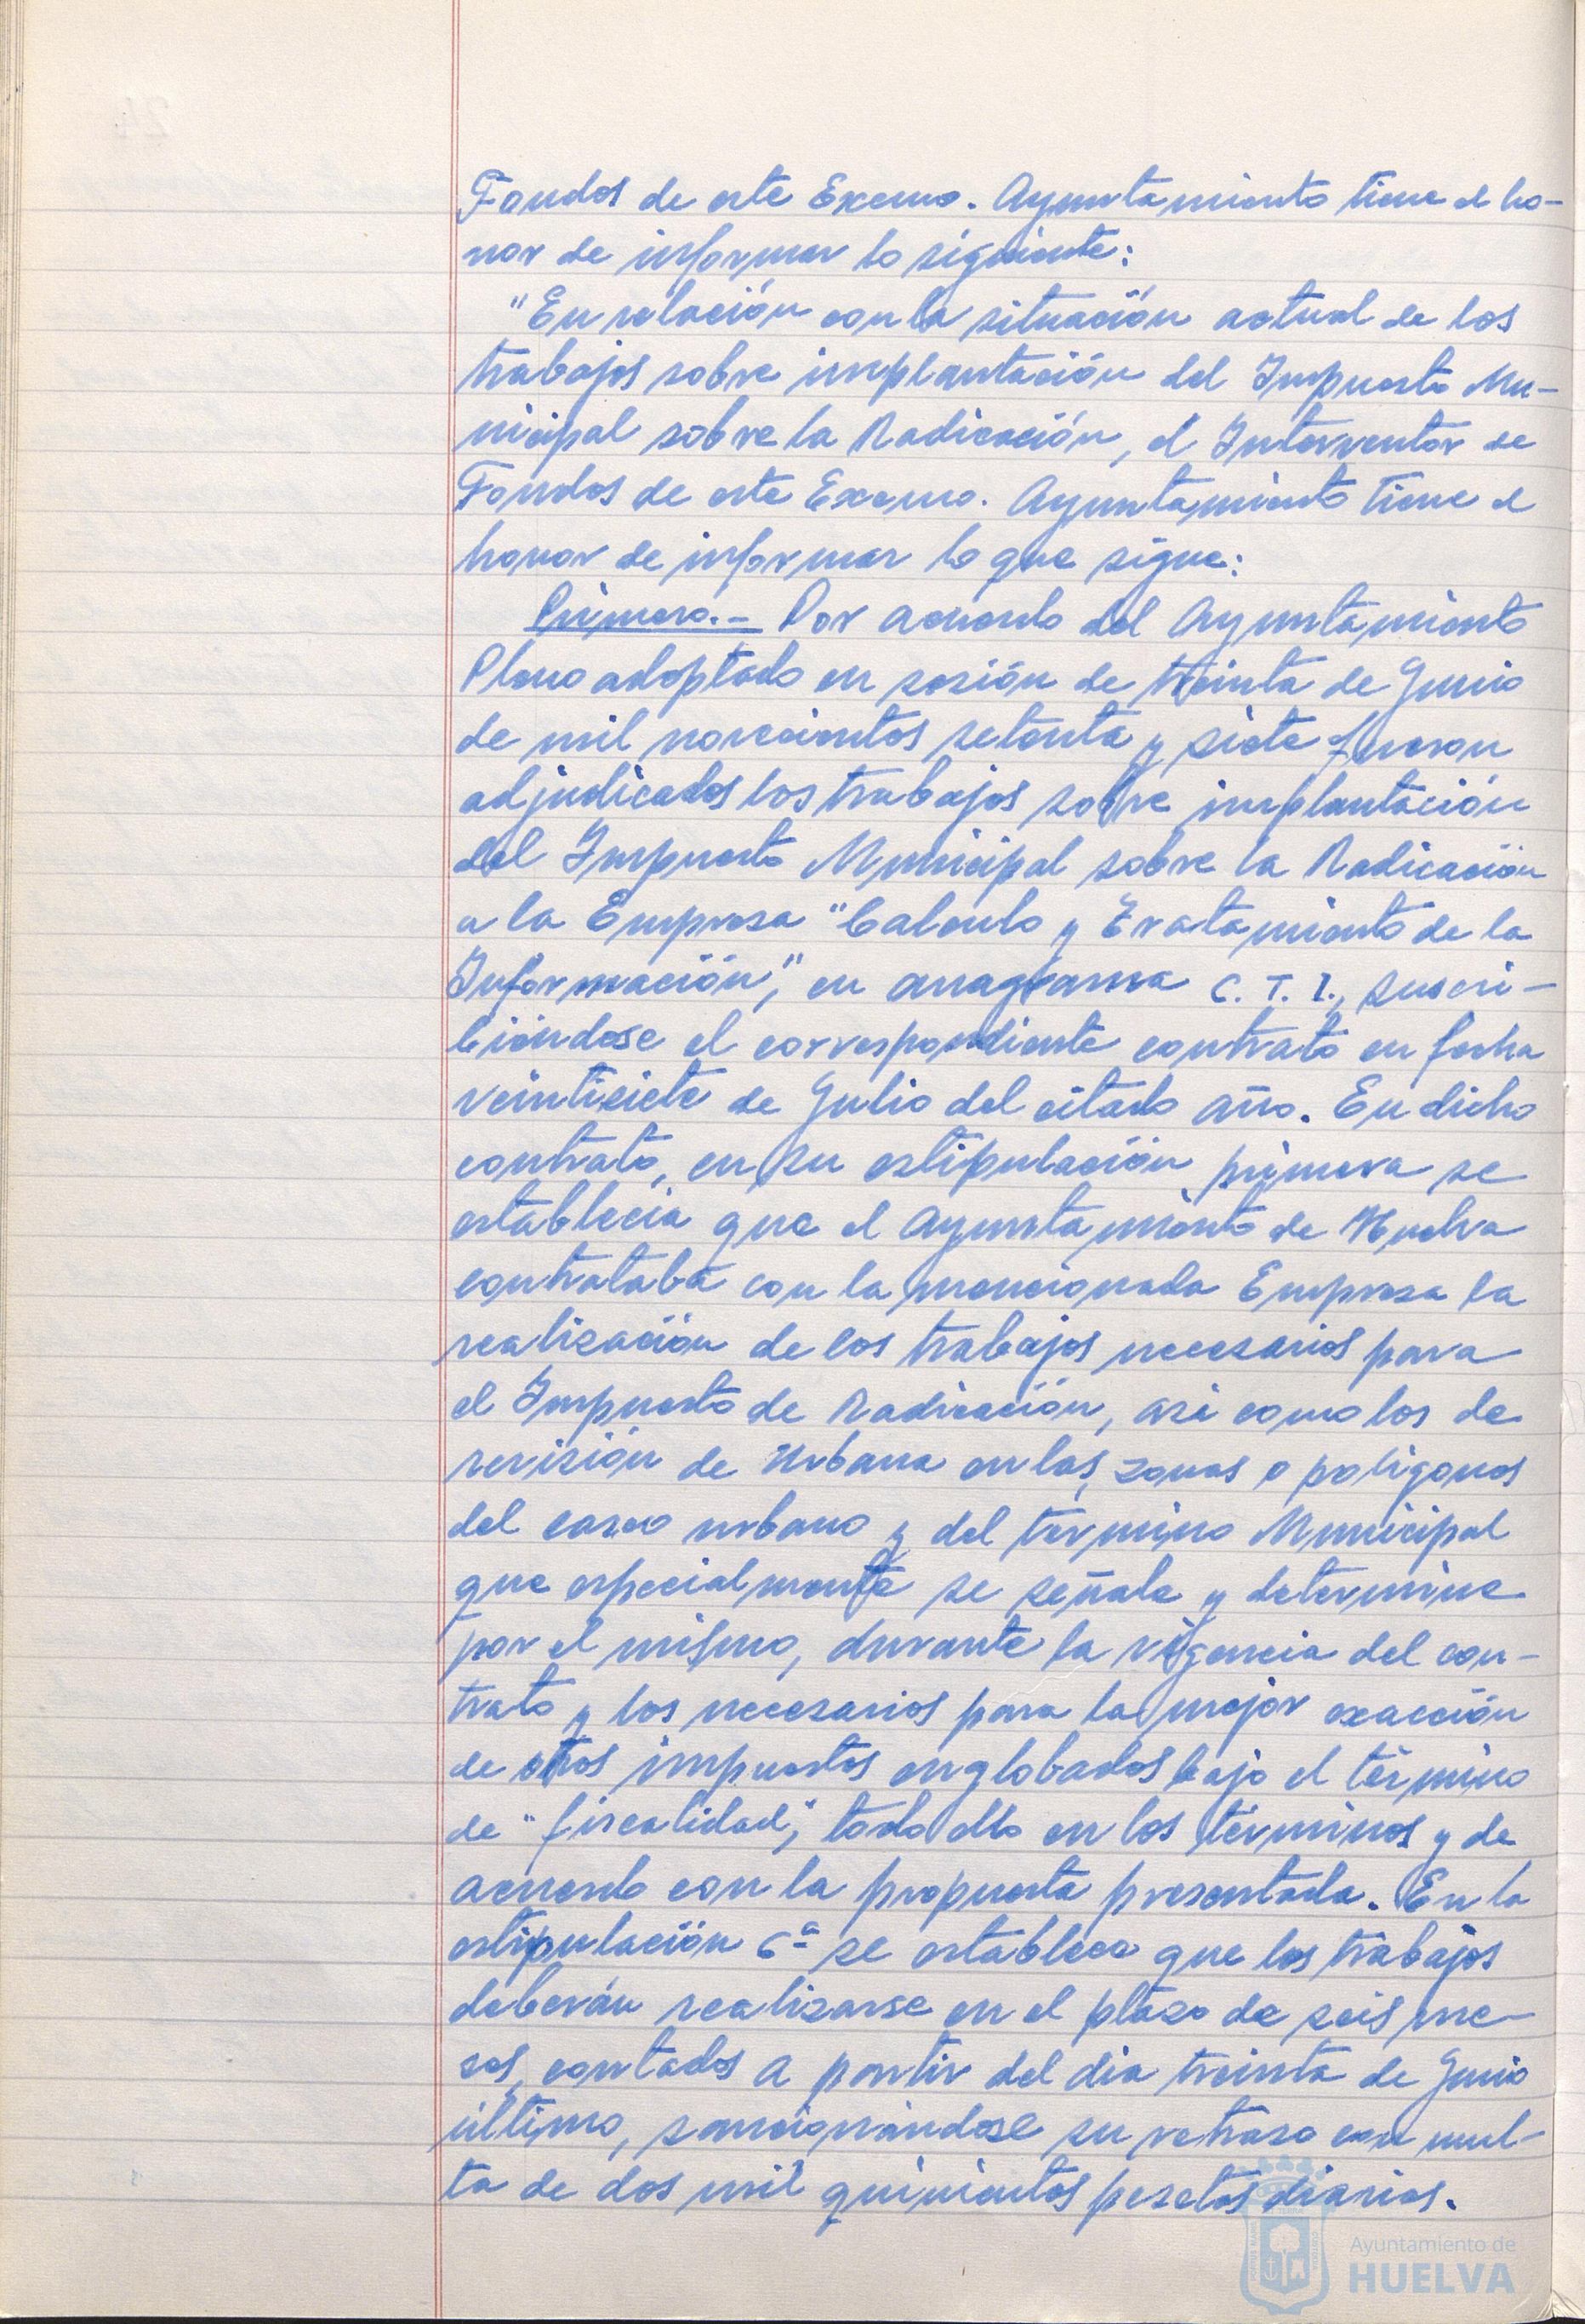 Fondos de este Excmo. Ayuntamiento tiene el ho-
nor de informar lo siguiente:
"En relación con la situación actual de los
trabajos sobre implantación del Impuesto Mu-
nicipal sobre la Radicación, el Interventor de
Fondos de este Excmo. Ayuntamiento tiene el
honor de informar lo que sigue:
Primero.- Por acuerdo del Ayuntamiento
Pleno adoptado en sesión de treinta de Junio
de mil novecientos setenta y siete fueron
adjudicados los trabajos sobre implantación
del Impuesto Municipal sobre la Radicación
a la Empresa "Calculo y Tratamiento de la
Información", en anagrama C.T.I., suscri-
biéndose el correspondiente contrato en fecha
veintisiete de Julio del citado año. En dicho
contrato, en su estipulación primera se
establecía que el Ayuntamiento de Huelva
contrataba con la mencionada Empresa la
realización de los trabajos necesarios para
el Impuesto de Radicación, asi como los de
revisión de Urbana en las zonas o poligonos
del casco urbano y del término Municipal
que especialmente se señale y determine
por el mismo, durante la vigencia del con-
trato y los necesarios para la mejor exacción
de otros impuestos englobados bajo el término
de "fiscalidad", todo ello en los términos y de
acuerdo con la propuesta presentada. En la
estipulación 6ª se establece que los trabajos
deberán realizarse en el plazo de seis me-
ses, contados a partir del dia treinta de Junio
último, sancionándose su retraso con mul-
ta de dos mil quinientos pesetas diarias.
Ayuntamiento de
HUELVA